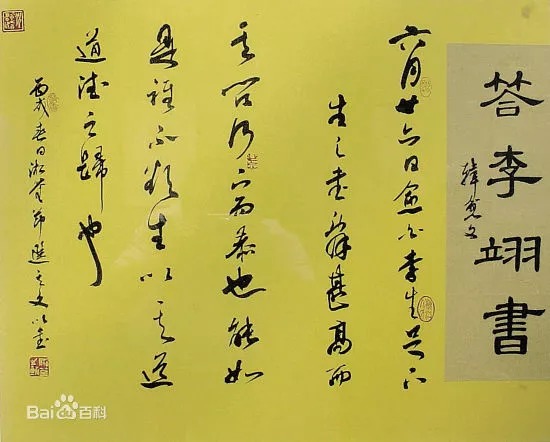 荅李翊書
韓愈文
六月廿六日愈白李生足下
生之書辭甚高而
其問何下而恭也能如
是誰不欲生以其道
道德之歸也
戌春日節選之文以書
Bai百科